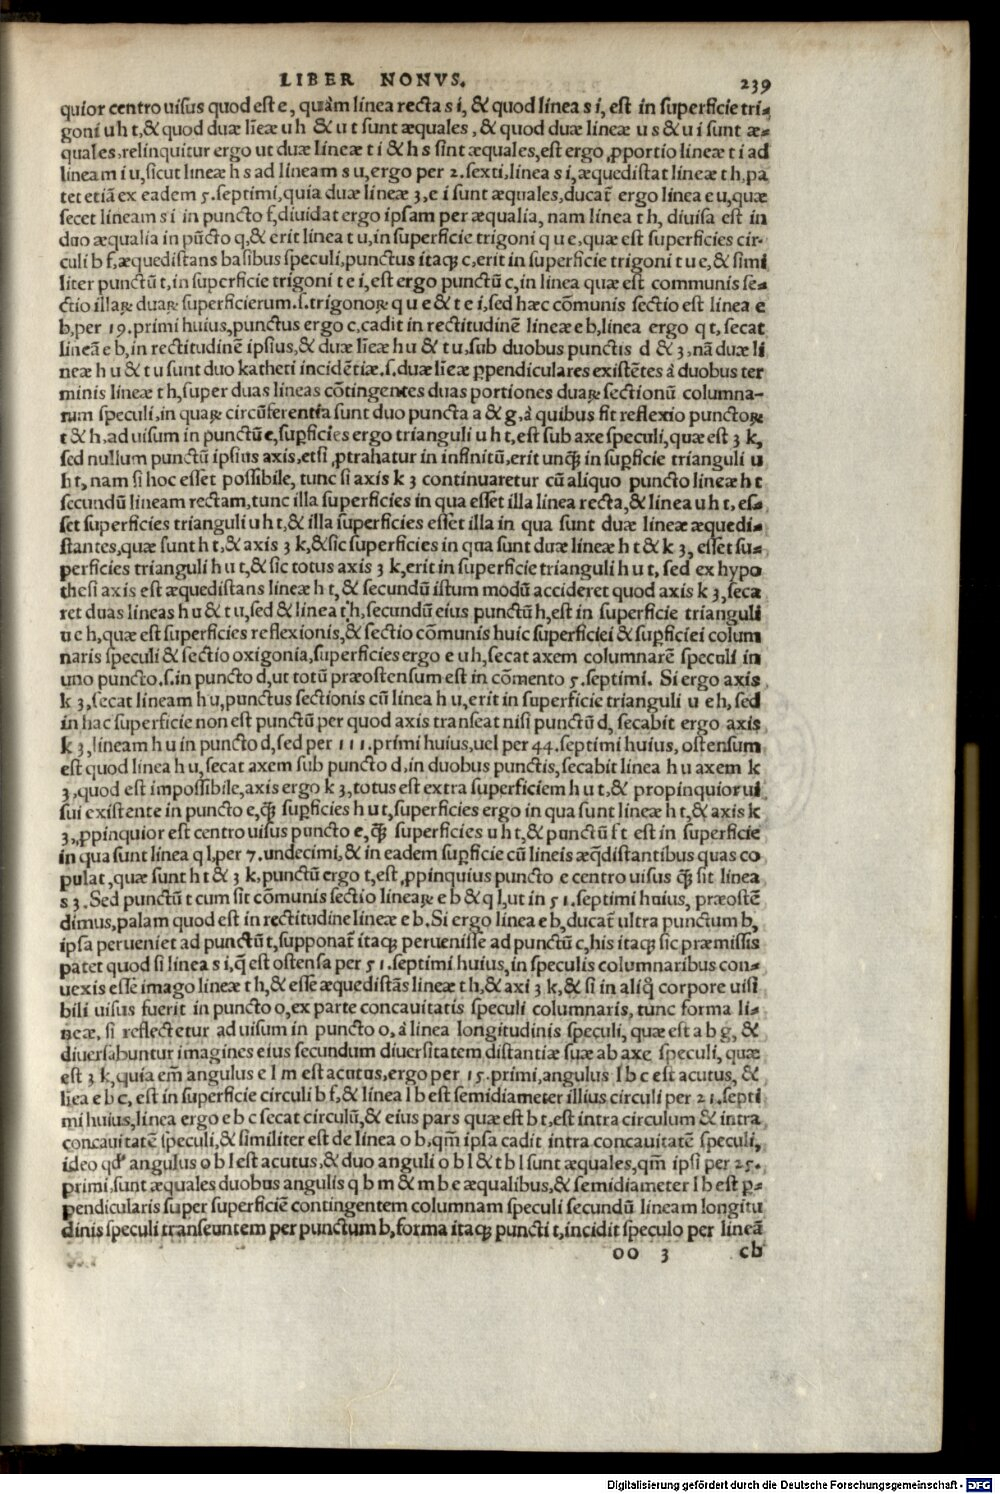 LIBER NONVS. 239
quior centro uisus quod est e, quàm linea recta s i, & quod linea s i, est in superficie tri-
goni u h t, & quod duæ lĩeæ u h & u t sunt æquales, & quod duæ lineæ u s & u i sunt æ-
quales, relinquitur ergo ut duæ lineæ t i & h s sint æquales, est ergo ꝓportio lineæ t i ad
lineam i u, sicut lineæ h s ad lineam s u, ergo per 2. sexti, linea s i, æquedistat lineæ t h, pa
tet etiã ex eadem 5. septimi, quia duæ lineæ 3, e i sunt æquales, ducat̃ ergo linea e u, quæ
secet lineam s i in puncto f, diuidat ergo ipsam per æqualia, nam linea t h, diuisa est in
duo æqualia in pũcto q, & erit linea t u, in superficie trigoni q u e, quæ est superficies cir-
culi b f, æquedistans basibus speculi, punctus itaqꝫ c, erit in superficie trigoni t u e, & simi
liter punctũ t, in superficie trigoni t e i, est ergo punctũ c, in linea quæ est communis se-
ctio illaꝝ duaꝝ superficierum .s. trigonoꝝ q u e & t e i, sed hæc cõmunis sectio est linea e
b, per 19. primi huius, punctus ergo c, cadit in rectitudinẽ lineæ e b, linea ergo q t, secat
lineã e b, in rectitudinẽ ipsius, & duæ lĩeæ h u & t u, sub duobus punctis d & 3, nã duæ li
neæ h u & t u sunt duo katheti incidẽtiæ .s. duæ lĩeæ ꝑpendiculares existẽtes à duobus ter
minis lineæ t h, super duas lineas cõtingentes duas portiones duaꝝ sectionũ columna-
rum speculi, in quaꝝ circũferentia sunt duo puncta a & g, à quibus fit reflexio punctoꝝ
t & h, ad uisum in punctũ e, suꝑficies ergo trianguli u h t, est sub axe speculi, quæ est 3 k,
sed nullum punctũ ipsius axis, etsi ꝓtrahatur in infinitũ, erit unꝗ̃ in suꝑficie trianguli u
h t, nam si hoc esset possibile, tunc si axis k 3 continuaretur cũ aliquo puncto lineæ h t
secundũ lineam rectam, tunc illa superficies in qua esset illa linea recta, & linea u h t, es-
set superficies trianguli u h t, & illa superficies esset illa in qua sunt duæ lineæ æquedi-
stantes, quæ sunt h t, & axis 3 k, & sic superficies in qua sunt duæ lineæ h t & k 3, esset su-
perficies trianguli h u t, & sic totus axis 3 k, erit in superficie trianguli h u t, sed ex hypo
thesi axis est æquedistans lineæ h t, & secundũ istum modũ accideret quod axis k 3, seca
ret duas lineas h u & t u, sed & linea t h, secundũ eius punctũ h, est in superficie trianguli
u e h, quæ est superficies reflexionis, & sectio cõmunis huic superficiei & suꝑficiei colum
naris speculi & sectio oxigonia, superficies ergo e u h, secat axem columnarẽ speculi in
uno puncto .s. in puncto d, ut totũ præostensum est in cõmento 5. septimi. Si ergo axis
k 3, secat lineam h u, punctus sectionis cũ linea h u, erit in superficie trianguli u e h, sed
in hac superficie non est punctũ per quod axis transeat nisi punctũ d, secabit ergo axis
k 3, lineam h u in puncto d, sed per 111. primi huius, uel per 44. septimi huius, ostensum
est quod linea h u, secat axem sub puncto d, in duobus punctis, secabit linea h u axem k
3, quod est impossibile, axis ergo k 3, totus est extra superficiem h u t, & propinquior ui
sui existente in puncto e, ꝗ̃ suꝑficies h u t, superficies ergo in qua sunt lineæ h t, & axis k
3, ꝓpinquior est centro uisus puncto e, ꝗ̃ superficies u h t, & punctũ f t est in superficie
in qua sunt linea q l, per 7. undecimi, & in eadem suꝑficie cũ lineis æq̃distantibus quas co
pulat, quæ sunt h t & 3 k, punctũ ergo t, est ꝓpinquius puncto e centro uisus ꝗ̃ sit linea
s 3. Sed punctũ t cum sit cõmunis sectio lineaꝝ e b & q l, ut in 51. septimi huius, præostẽ
dimus, palam quod est in rectitudine lineæ e b. Si ergo linea e b, ducat̃ ultra punctum b,
ipsa perueniet ad punctũ t, supponat̃ itaqꝫ peruenisse ad punctũ c, his itaqꝫ sic præmissis
patet quod si linea s i, q̃ est ostensa per 51. septimi huius, in speculis columnaribus con-
uexis esse imago lineæ t h, & esse æquedistãs lineæ t h, & axi 3 k, & si in aliq̃ corpore uisi
bili uisus fuerit in puncto o, ex parte concauitatis speculi columnaris, tunc forma li-
neæ, si reflectetur ad uisum in puncto o, à linea longitudinis speculi, quæ est a b g, &
diuersabuntur imagines eius secundum diuersitatem distantiæ suæ ab axe speculi, quæ
est 3 k, quia em̃ angulus e l m est acutus, ergo per 15. primi, angulus l b c est acutus, &
lĩea e b c, est in superficie circuli b f, & linea l b est semidiameter illius circuli per 21. septi
mi huius, linea ergo e b c secat circulũ, & eius pars quæ est b t, est intra circulum & intra
concauitatẽ speculi, & similiter est de linea o b, qm̃ ipsa cadit intra concauitatẽ speculi,
ideo qđ angulus o b l est acutus, & duo anguli o b l & t b l sunt æquales, qm̃ ipsi per 25.
primi, sunt æquales duobus angulis q b m & m b e æqualibus, & semidiameter l b est ꝑ-
pendicularis super superficiẽ contingentem columnam speculi secundũ lineam longitu
dinis speculi transeuntem per punctum b, forma itaqꝫ puncti t, incidit speculo per lineã
oo 3 cb
Digitalisierung gefördert durch die Deutsche Forschungsgemeinschaft - DFG